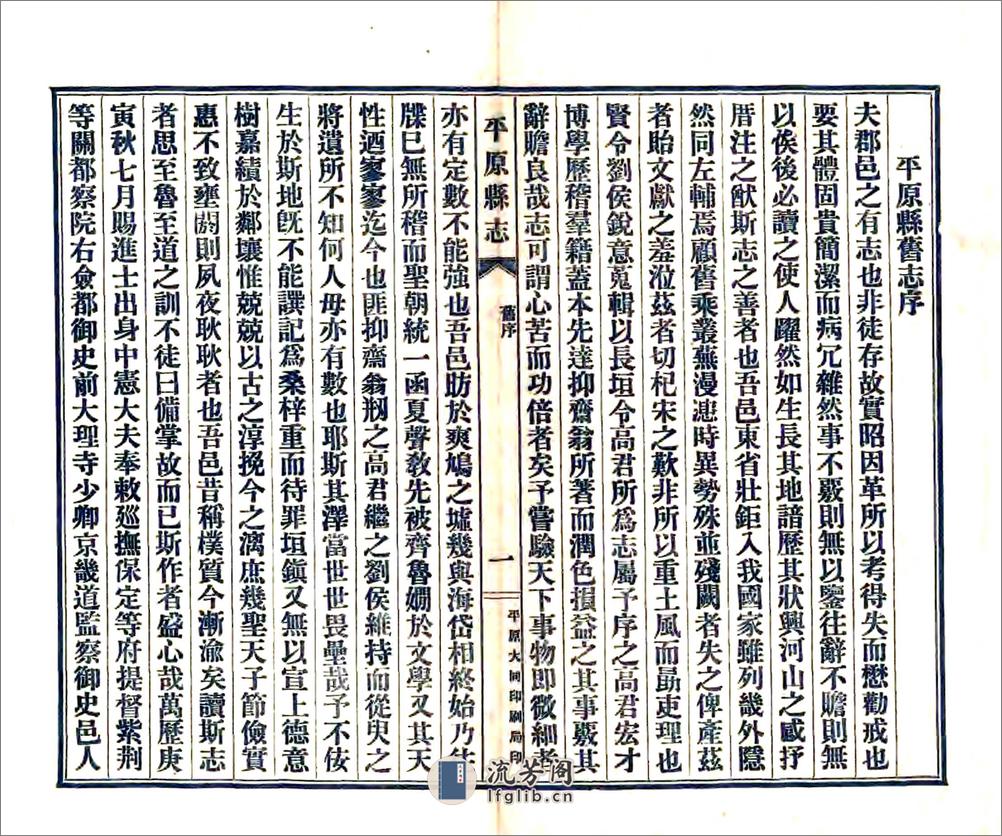 平原縣舊志序
夫郡邑之有志也非徒存故實昭因革所以考得失而懋勸戒也
要其體固貴簡潔而病冗雜然事不覈則無以鑒往辭不贍則無
以俟後必讀之使人躍然如生長其地諳歷其狀興河山之感抒
厝注之猷斯志之善者也吾邑東省壯鉅入我國家雖列畿外隱
然同左輔焉顧舊乘叢蕪漫漶時異勢殊並殘闕者失之俾產茲
者貽文獻之羞涖茲者切杞宋之歎非所以重土風而勗吏理也
賢令劉侯銳意蒐輯以長垣令高君所爲志屬予序之高君宏才
博學歷稽羣籍蓋本先達抑齋翁所著而潤色損益之其事覈其
辭贍良哉志可謂心苦而功倍者矣予嘗驗天下事物即微細者
平原縣志
舊序
一
平原大同印刷局印
亦有定數不能強也吾邑昉於爽鳩之墟幾與海岱相終始乃往
牒已無所稽而聖朝統一函夏聲敎先被齊魯嫺於文學又其天
性迺寥寥迄今也匪抑齋翁剏之高君繼之劉侯維持而從臾之
將遺所不知何人毋亦有數也耶斯其澤當世世畏壘哉予不佞
生於斯地旣不能譔記爲桑梓重而待罪垣鎮又無以宣上德意
樹嘉績於鄰壤惟兢兢以古之淳挽今之漓庶幾聖天子節儉實
惠不致壅閼則夙夜耿耿者也吾邑昔稱樸質今漸渝矣讀斯志
者思至魯至道之訓不徒曰備掌故而已斯作者盛心哉萬歷庚
寅秋七月賜進士出身中憲大夫奉敕巡撫保定等府提督紫荆
等關都察院右僉都御史前大理寺少卿京畿道監察御史邑人
流芳阁
lfglib.cn